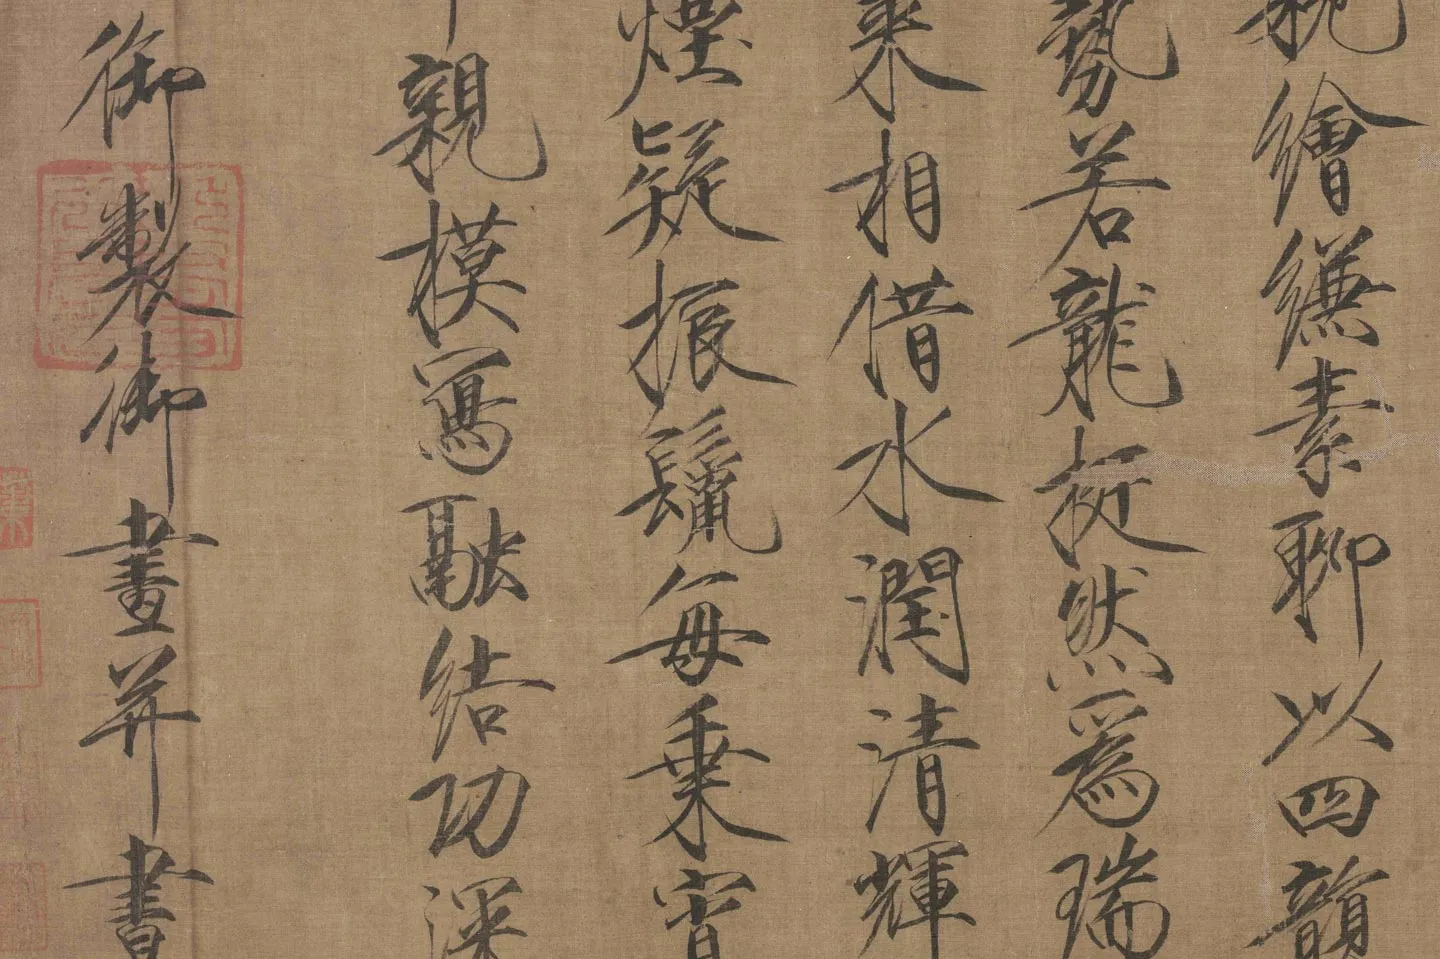 親繪縑素聊以四韻
勢若龍挺然爲瑞
來相借水潤清輝
煙疑振鬣每乘宵
親模寫融結功深
御製御畫并書